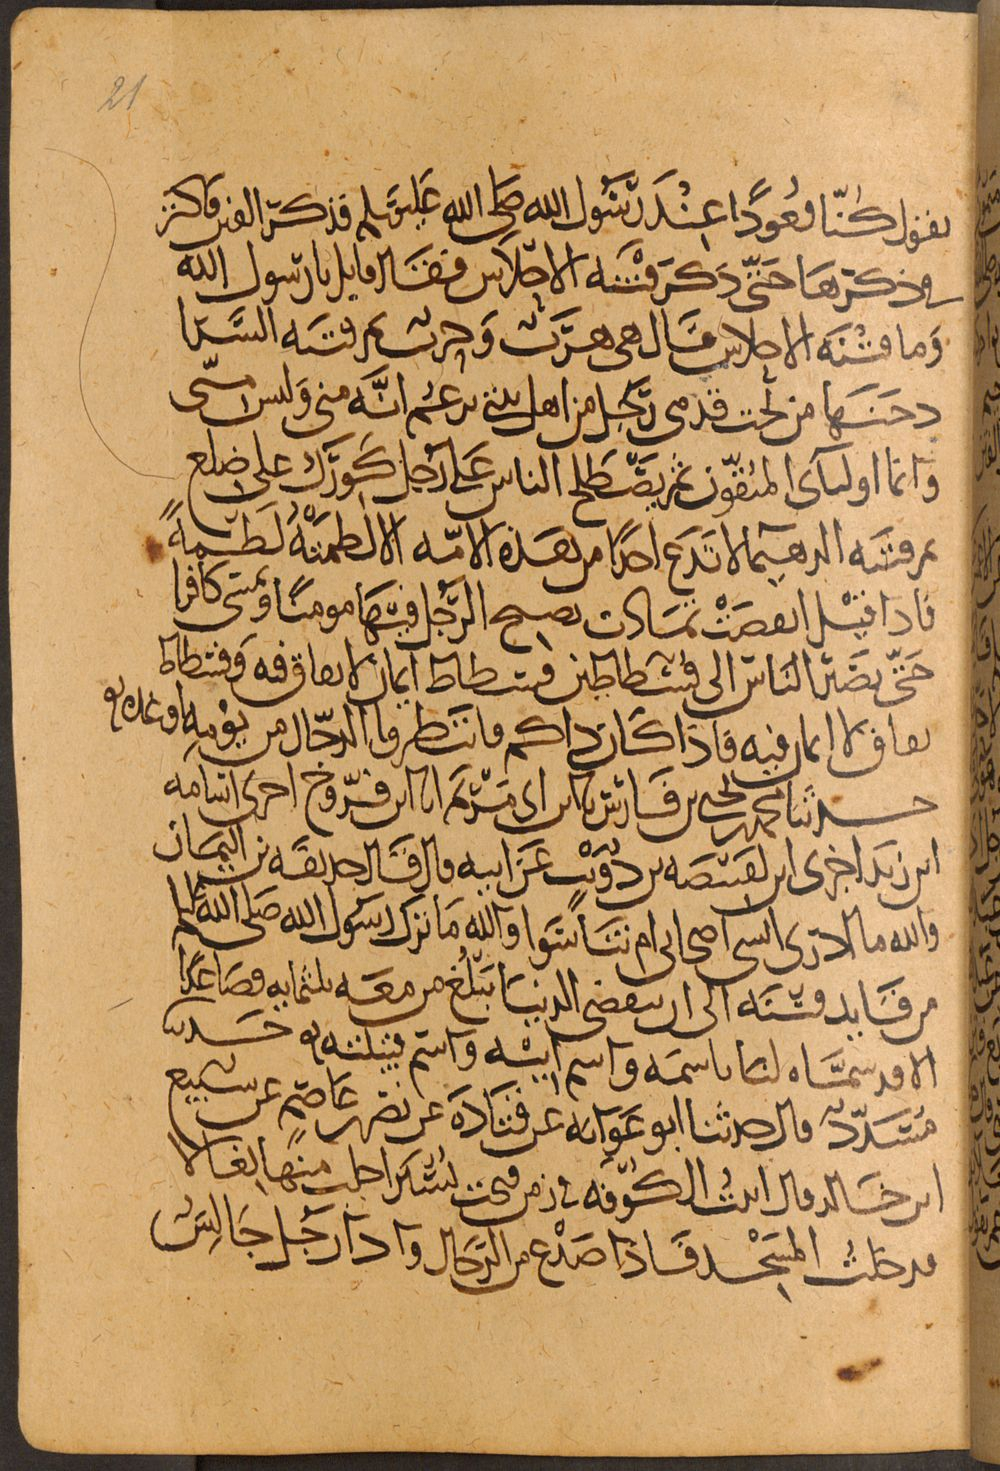 21
يقول كُنّا قعُودًا عِنْدَ رَسُول الله صلى الله عليه وسلم فذكر الفتن فاكثر
في ذكرها حَتّى ذكر فتْنَه الاحْلَاس فقال قايل يا رسول الله
وَما فتْنَه الاحلاس قال هي هرَبٌ وَحربٌ ثم فتنه السَّرّا
دخنها من تحت قدمي رَجل من اهل بيتي يزعُم انَّه مني وَليس منّي
وَانما اوليآئ المتّقون ثم يصْطلح الناس عَلى رَجل كوَرَك على ضِلع
ثم فتنه الدهيما لا تدَع احدًا من هذه الامّه الا لطمَتْهُ لَطمةً
فاذا قيْل انقضَتْ تمَادت يصبح الرَّجل فيهَا مومنًا ويمسى كافرا
حَتّى يصَير النَاس الى فسْطاطين فسطاط ايمان لا نفاق فيه وَفسطاط
نفاق لا ايمان فيه فاذا كان ذاكم فانتَظروا الدجّال من يوْمِه او غده
حدثنا محمد بن يحيى بن فَارس نا ابن ابي مَرْيَم انا ابن فَرّوخ اخبرني اسامه
ابن زيَد اخبرني ابن لقَبيْصَه بن ذُؤَيْب عَن ابيه قال قَال حذيفَه بن اليمَان
والله ما ادرى انسي اصحابي ام تنَاسَوا وَالله مَا ترك رسَول الله صَلى الله عليه وسلم
من قَايد فتْنَه الى ان تنقضى الدنيَا يَبْلُغ من معَه ثلثمايه فصَاعدًا
الا قد سمَّاه لنا باسمَه وَاسم ابيْه وَاسم قبيلته حَدثنا
مُسَدّدٌ قال حدثنا ابو عَوَانه عن قتَادَه عن نصر بن عَاصِم عن سُبيع
ابن خَالد قال اتيتُ الكوُفه في زمن فتحت تُسْتَر اجلب منهَا بغَالا
فدخلتُ المسَجْد فَاذا صَدْع من الرّجَال وَاذا رَجل جَالسٌ